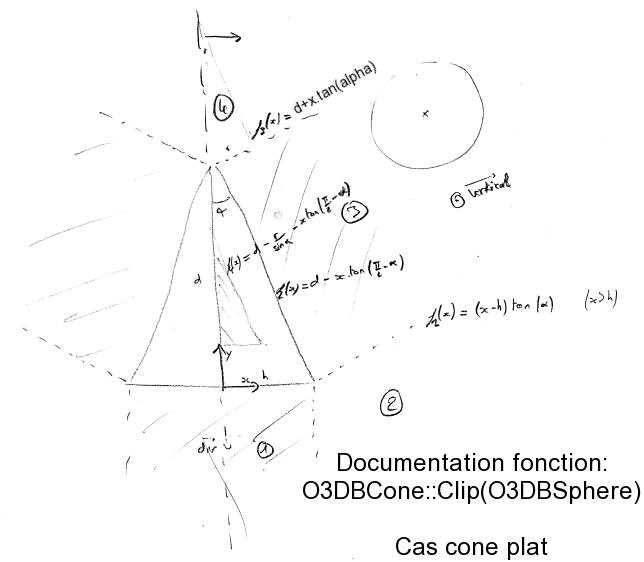 4
f₃(x) = d+x.tan(alpha)
x
③
vertical
α
f₁(x) = d - r/sinα - x tan(π/2 - α)
d
f₂(x) = d - x.tan(π/2 - α)
f₂(x) = (x-h) tan(α) (x>h)
y
x h
②
dir
①
Documentation fonction:
O3DBCone::Clip(O3DBSphere)
Cas cone plat